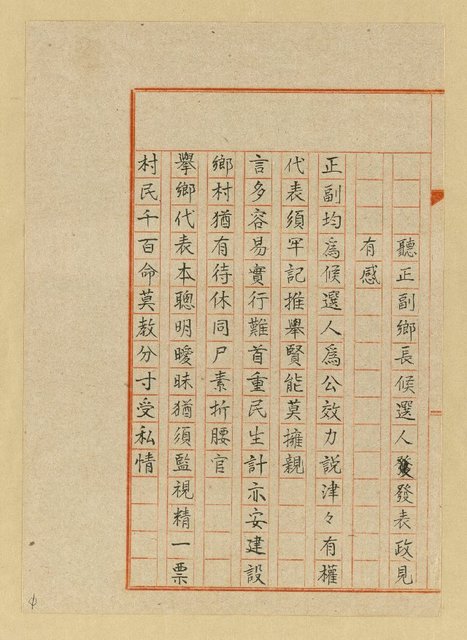 聽正副鄉長候選人發表政見
有感
正副均為候選人為公效力說津々有權
代表須牢記推舉賢能莫擁親
言多容易實行難首重民生計亦安建設
鄉村猶有待休同尸素折腰官
舉鄉代表本聰明曖昧猶須監視精一票
村民千百命莫教分寸受私情